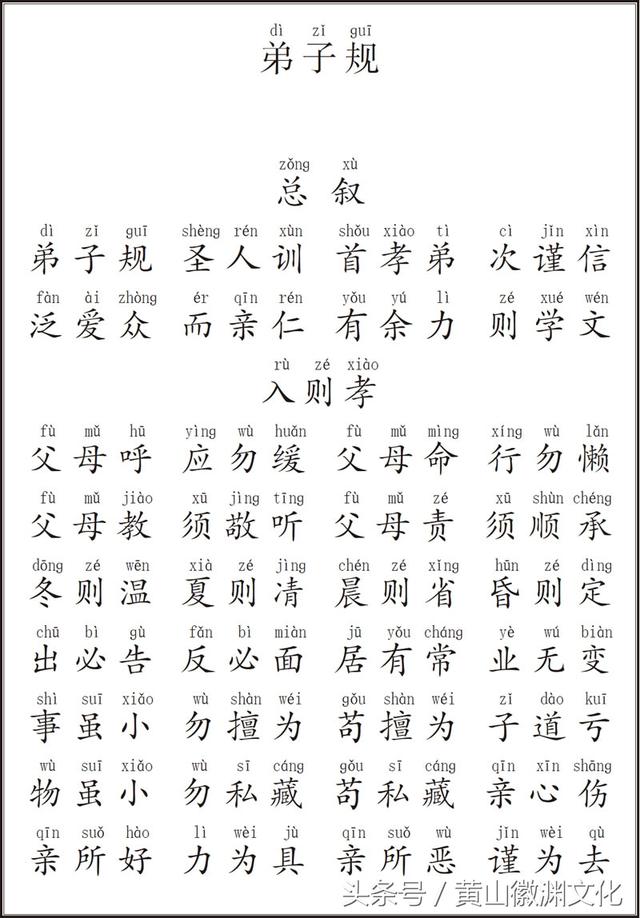 dì zǐ guī
弟子规
zǒng xù
总叙
dì zǐ guī shèng rén xùn shǒu xiào tì cì jǐn xìn
弟子规 圣人训 首孝弟 次谨信
fàn ài zhòng ér qīn rén yǒu yú lì zé xué wén
泛爱众 而亲仁 有余力 则学文
rù zé xiào
入则孝
fù mǔ hū yìng wù huǎn fù mǔ mìng xíng wù lǎn
父母呼 应勿缓 父母命 行勿懒
fù mǔ jiào xū jìng tīng fù mǔ zé xū shùn chéng
父母教 须敬听 父母责 须顺承
dōng zé wēn xià zé jìng chén zé xǐng hūn zé dìng
冬则温 夏则凊 晨则省 昏则定
chū bì gù fǎn bì miàn jū yǒu cháng yè wú biàn
出必告 反必面 居有常 业无变
shì suī xiǎo wù shàn wéi gǒu shàn wéi zǐ dào kuī
事虽小 勿擅为 苟擅为 子道亏
wù suī xiǎo wù sī cáng gǒu sī cáng qīn xīn shāng
物虽小 勿私藏 苟私藏 亲心伤
qīn suǒ hào lì wèi jù qīn suǒ wù jǐn wèi qù
亲所好 力为具 亲所恶 谨为去
头条号/黄山徽渊文化